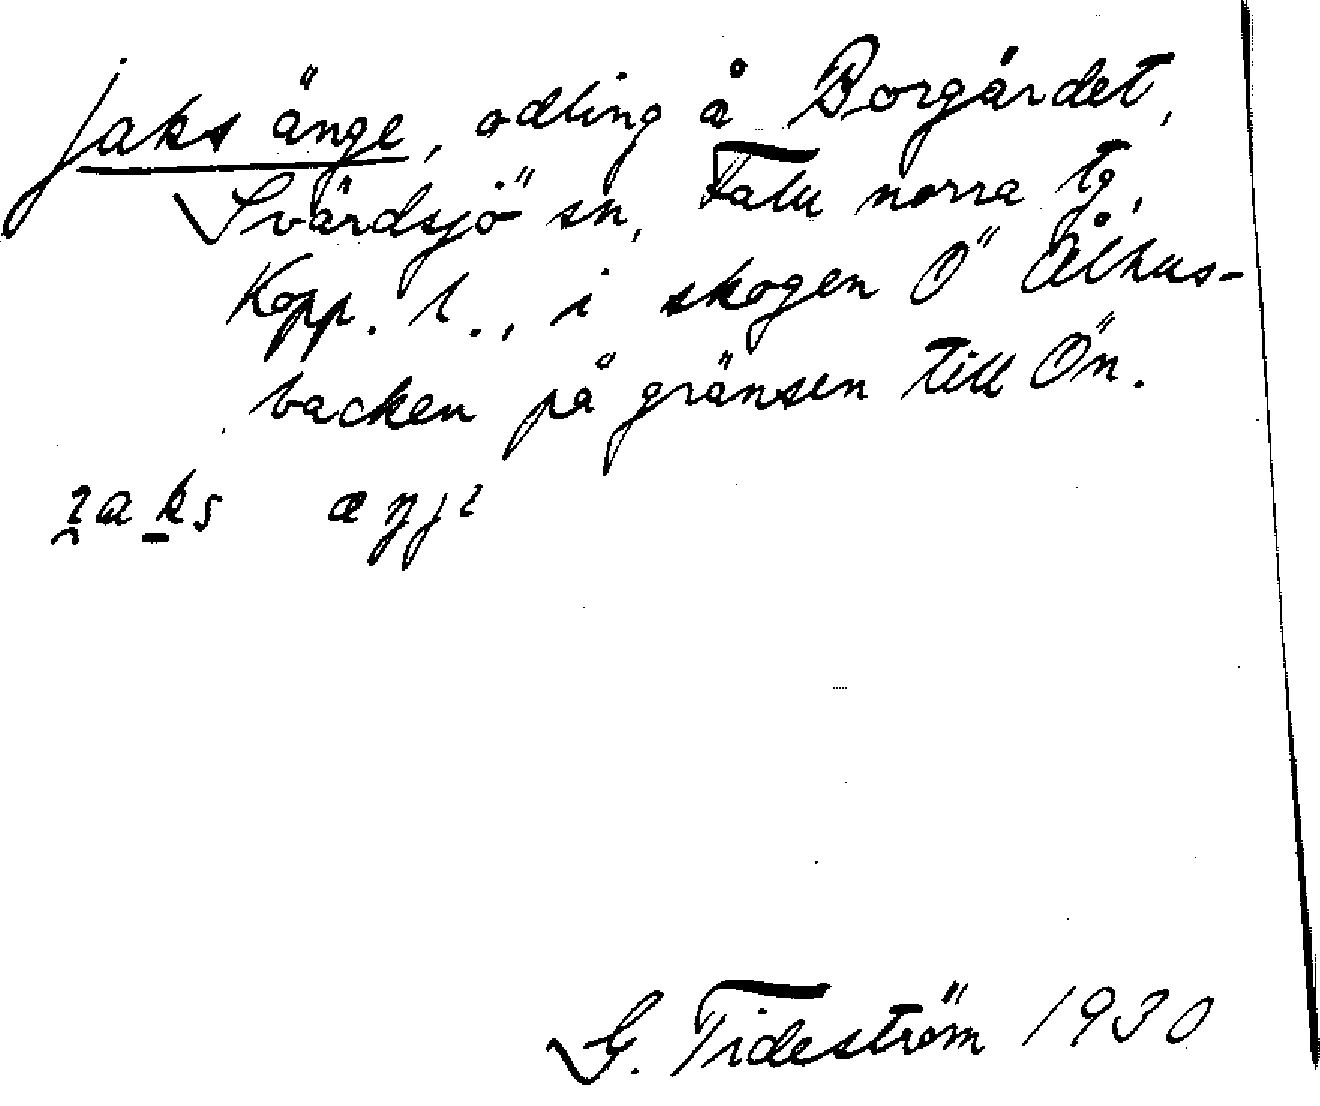 Jaks änge, odling å Borgärdet,
Svärdsjö sn, Falu norra tg,
Kopp. l., i skogen Ö Ålhus-
backen på gränsen till Ön.
G. Tideström 1930